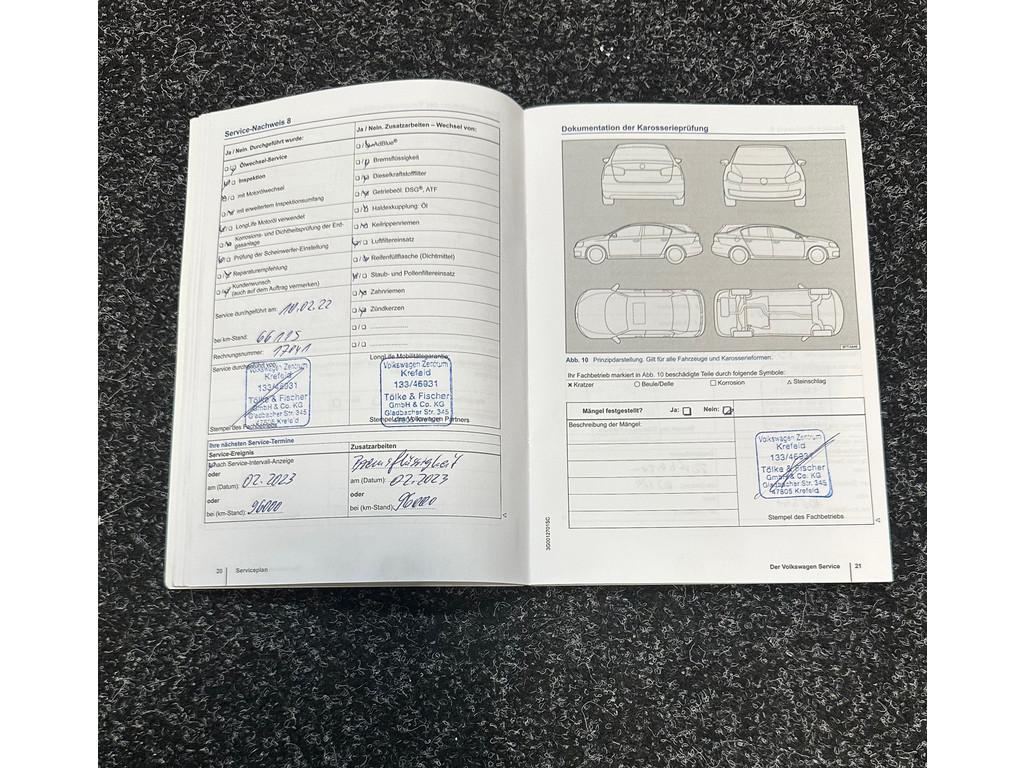 Service-Nachweis 8
Ja / Nein. Durchgeführt wurde:
Ölwechsel-Service
Inspektion
mit Motorölwechsel
mit erweitertem Inspektionsumfang
LongLife Motoröl verwendet
Korrosions- und Dichtheitsprüfung der Ent-
gasanlage
Prüfung der Scheinwerfer-Einstellung
Reparaturempfehlung
Kundenwunsch
(auch auf dem Auftrag vermerken)
Service durchgeführt am: 10.02.22
bei km-Stand: 66195
Rechnungsnummer: 17841
Service durchgeführt von:
Volkswagen Zentrum
Krefeld
133/46931
Tölke & Fischer
GmbH & Co. KG
Gladbacher Str. 345
47805 Krefeld
Stempel des Fachbetriebs
Ja / Nein. Zusatzarbeiten – Wechsel von:
AdBlue®
Bremsflüssigkeit
Dieselkraftstofffilter
Getriebeöl: DSG®, ATF
Haldexkupplung: Öl
Keilrippenriemen
Luftfiltereinsatz
Reifenfüllflasche (Dichtmittel)
Staub- und Pollenfiltereinsatz
Zahnriemen
Zündkerzen
LongLife Mobilitätsgarantie
Volkswagen Zentrum
Krefeld
133/46931
Tölke & Fischer
GmbH & Co. KG
Gladbacher Str. 345
Stempel des Volkswagen Partners
Ihre nächsten Service-Termine
Service-Ereignis
nach Service-Intervall-Anzeige
oder
am (Datum): 02.2023
oder
bei (km-Stand): 96000
Zusatzarbeiten
Bremsflüssigkeit
am (Datum): 02.2023
oder
bei (km-Stand): 96000
20 Serviceplan
Dokumentation der Karosserieprüfung
Abb. 10 Prinzipdarstellung. Gilt für alle Fahrzeuge und Karosserieformen.
Ihr Fachbetrieb markiert in Abb. 10 beschädigte Teile durch folgende Symbole:
× Kratzer ○ Beule/Delle □ Korrosion △ Steinschlag
Mängel festgestellt? Ja: Nein:
Beschreibung der Mängel:
Volkswagen Zentrum
Krefeld
133/46931
Tölke & Fischer
GmbH & Co. KG
Gladbacher Str. 345
47805 Krefeld
Stempel des Fachbetriebs
3G0012701SC
Der Volkswagen Service 21